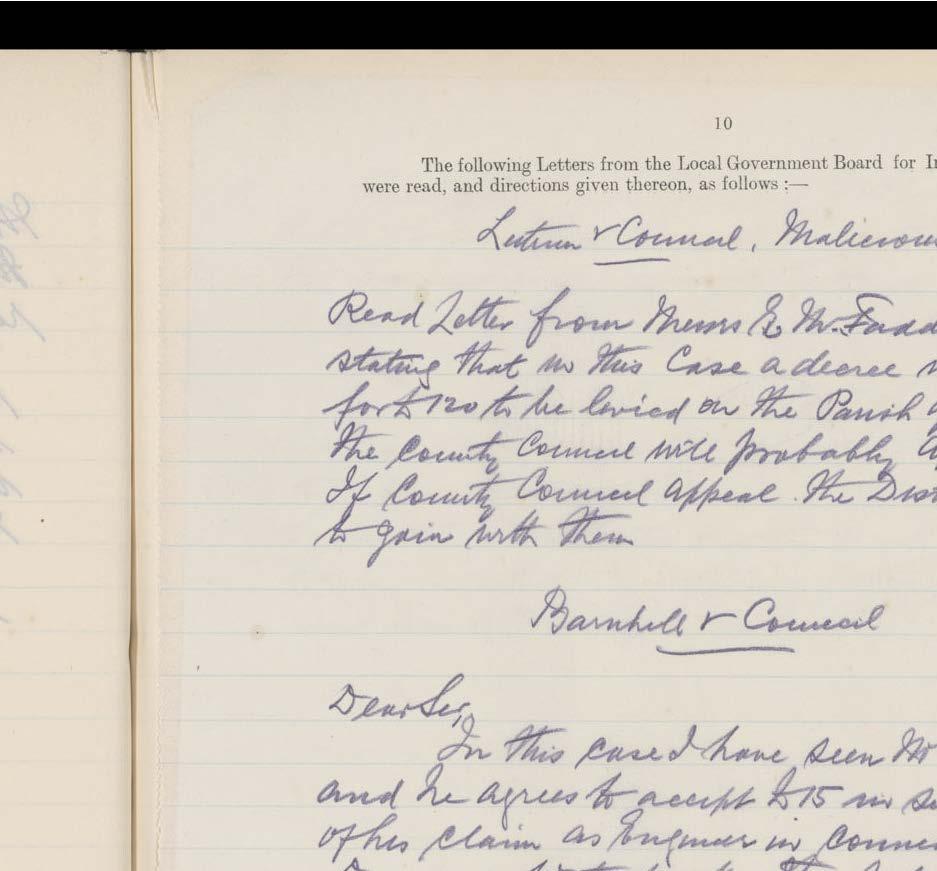 10
The following Letters from the Local Government Board for
were read, and directions given thereon, as follows :—
v Council, Malicious
Read Letter from Messrs E. McFadd
stating that in this Case a decree
for £120 to be levied on the Parish
the County Council will probably
If County Council appeal the Dist
to goin with them
Barnhill v Council
Dear Sir,
In this case I have seen Mr
and he agrees to accept £15 in
of his claim as Engineer in conne